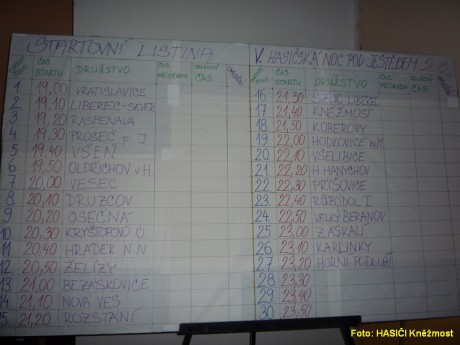 STARTOVNÍ LISTINA
ČAS STARTU DRUŽSTVO ČAS
1 19,00 VRATISLAVICE
2 19,10 LIBEREC-SEVER
3 19,20 RASPENAVA
4 19,30 PROSEČ p. J
5 19,40 VŠEŇ
6 19,50 OLDŘICHOV v H.
7 20,00 VESEC
8 20,10 DRUZCOV
9 20,20 OSEČNÁ
10 20,30 KRYŠTOFOVO Ú
11 20,40 HRÁDEK N.N
12 20,50 ŽELÍZY
13 21,00 BEZASKOVICE
14 21,10 NOVÁ VES
15 21,20 ROZSTÁNÍ
V. HASIČSKÁ NOC POD JEŠTĚDEM
ČAS STARTU DRUŽSTVO ČAS
16 21,30 SŽDC LIBEREC
17 21,40 KNĚŽMOST
18 21,50 KOBEROVY
19 22,00 HODKOVICE n.M
20 22,10 VŠELIBICE
21 22,20 H. HANYCHOV
22 22,30 PŘÍŠOVICE
23 22,40 RŮŽODOL I
24 22,50 VELKÝ BERANOV
25 23,00 ZÁSKALÍ
26 23,10 KARLINKY
27 23,20 HORNÍ PODLUŽÍ
28 23,30
29 23,40
30 23,50
Foto: HASIČI Kněžmost